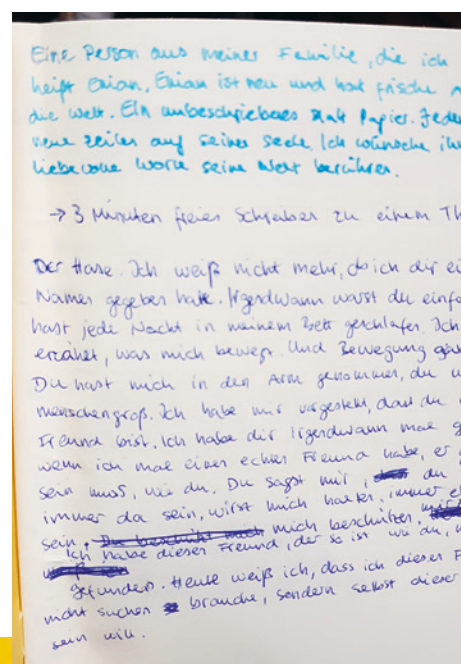 Eine Person aus meiner Familie, die ich
heißt Enian. Enian ist neu und hat frische
die Welt. Ein unbeschriebenes Blatt Papier. Jeder
neue Zeilen auf seiner Seele. Ich wünsche ihm
liebevolle Worte seine Welt berühren.
→ 3 Minuten freies Schreiben zu einem Th
Der Hase. Ich weiß nicht mehr, ob ich dir ei
Namen gegeben habe. Irgendwann warst du einfa
hast jede Nacht in meinem Bett geschlafen. Ich
erzählt, was mich bewegt. Und Bewegung
Du hast mich in den Arm genommen, du
menschengroß. Ich habe mir vorgestellt, dass du
Freund bist. Ich habe dir irgendwann mal
wenn ich mal einen echten Freund habe, er
sein muss, wie du. Du sagst mir, du
immer da sein, wirst mich halten, immer
sein, mich beschützen,
Ich habe diesen Freund, der so ist wie du,
gefunden. Heute weiß ich, dass ich diesen F
nicht suchen brauche, sondern selbst dieser
sein will.